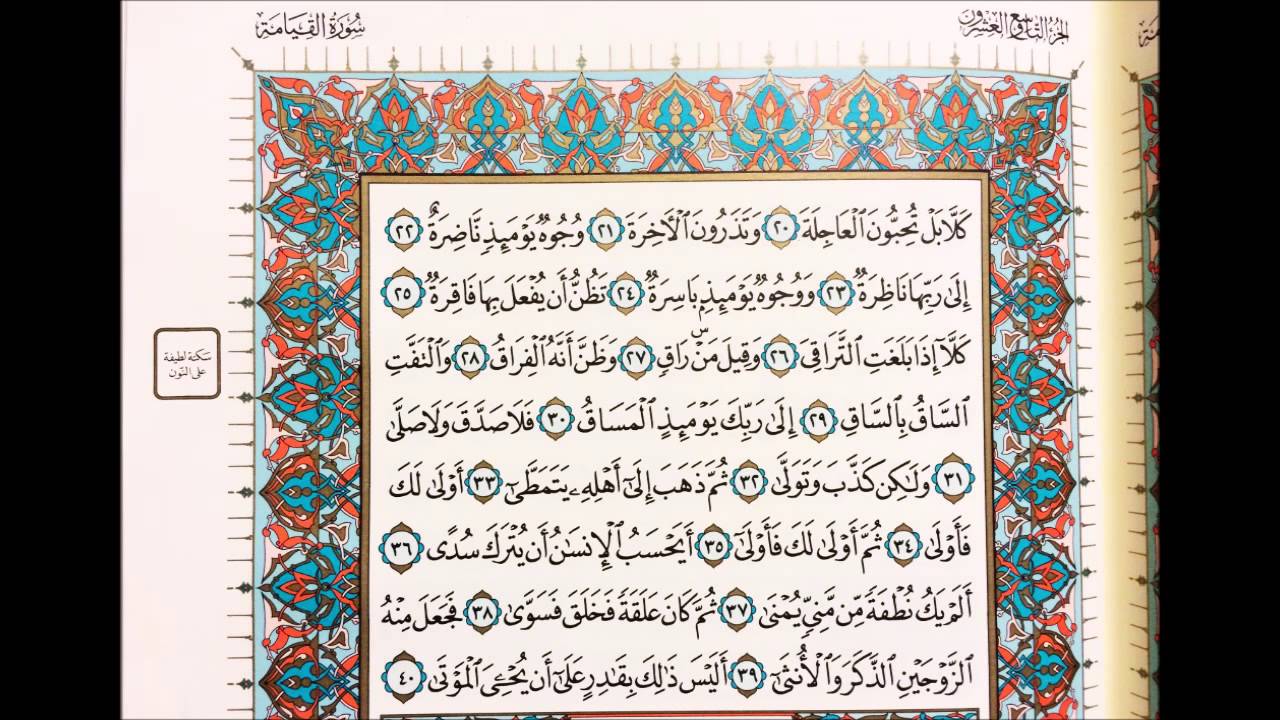 الجزء التاسع والعشرون
سورة القيامة
كَلَّا بَلْ تُحِبُّونَ ٱلْعَاجِلَةَ ٢٠ وَتَذَرُونَ ٱلْأٓخِرَةَ ٢١ وُجُوهٌ يَوْمَئِذٍ نَّاضِرَةٌ ٢٢
إِلَىٰ رَبِّهَا نَاظِرَةٌ ٢٣ وَوُجُوهٌ يَوْمَئِذٍۭ بَاسِرَةٌ ٢٤ تَظُنُّ أَن يُفْعَلَ بِهَا فَاقِرَةٌ ٢٥
كَلَّآ إِذَا بَلَغَتِ ٱلتَّرَاقِيَ ٢٦ وَقِيلَ مَنْۜ رَاقٍ ٢٧ وَظَنَّ أَنَّهُ ٱلْفِرَاقُ ٢٨ وَٱلْتَفَّتِ
سكتة لطيفة
على النون
ٱلسَّاقُ بِٱلسَّاقِ ٢٩ إِلَىٰ رَبِّكَ يَوْمَئِذٍ ٱلْمَسَاقُ ٣٠ فَلَا صَدَّقَ وَلَا صَلَّىٰ
٣١ وَلَٰكِن كَذَّبَ وَتَوَلَّىٰ ٣٢ ثُمَّ ذَهَبَ إِلَىٰٓ أَهْلِهِۦ يَتَمَطَّىٰٓ ٣٣ أَوْلَىٰ لَكَ
فَأَوْلَىٰ ٣٤ ثُمَّ أَوْلَىٰ لَكَ فَأَوْلَىٰٓ ٣٥ أَيَحْسَبُ ٱلْإِنسَٰنُ أَن يُتْرَكَ سُدًى ٣٦
أَلَمْ يَكُ نُطْفَةً مِّن مَّنِىٍّ يُمْنَىٰ ٣٧ ثُمَّ كَانَ عَلَقَةً فَخَلَقَ فَسَوَّىٰ ٣٨ فَجَعَلَ مِنْهُ
ٱلزَّوْجَيْنِ ٱلذَّكَرَ وَٱلْأُنثَىٰٓ ٣٩ أَلَيْسَ ذَٰلِكَ بِقَٰدِرٍ عَلَىٰٓ أَن يُحْـِۧىَ ٱلْمَوْتَىٰ ٤٠